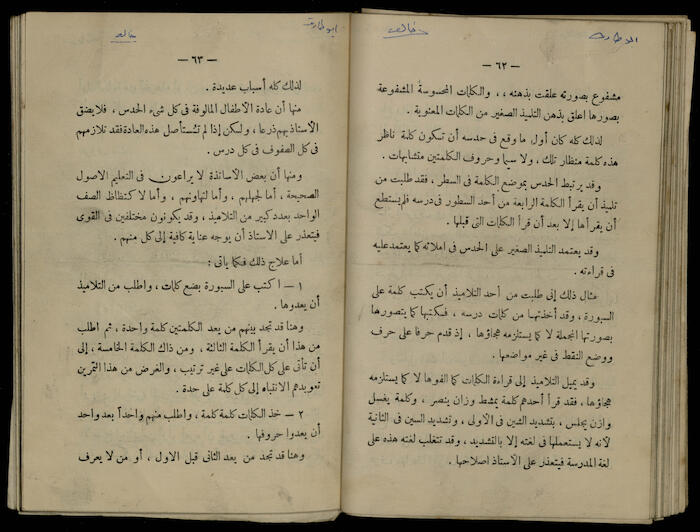 ابو طارق
خالد
— ٦٢ —
مشفوع بصورته علقت بذهنه ،، والكلمات المحسوسة المشفوعة
بصورها اعلق بذهن التلميذ الصغير من الكلمات المعنوية .
لذلك كله كان أول ما وقع في حدسه أن تكون كلمة ناظر
هذه كلمة منظار تلك ، ولا سيما وحروف الكلمتين متشابهات .
وقد يرتبط الحدس بموضع الكلمة في السطر ، فقد طلبت من
تلميذ أن يقرأ الكلمة الرابعة من أحد السطور في درسه فلم يستطع
أن يقرأها إلا بعد أن قرأ الكلمات التي قبلها .
وقد يعتمد التلميذ الصغير على الحدس في املائه كما يعتمد عليه
في قراءته .
مثال ذلك إني طلبت من أحد التلاميذ أن يكتب كلمة على
السبورة ، وقد أخذتها من كلمات درسه ، فكتبها كما يتصورها
بصورتها المجملة لا كما يستلزمه هجاؤها ، إذ قدم حرفا على حرف
ووضع النقط في غير مواضعها .
وقد يميل التلاميذ إلى قراءة الكلمات كما الفوها لا كما يستلزمه
هجاؤها ، فقد قرأ أحدهم كلمة يمشط وزان ينصر ، وكلمة يغسل
وازن يجلس ، بتشديد الشين في الأولى ، وتشديد السين في الثانية
لأنه لا يستعملها في لغته إلا بالتشديد ، وقد تتغلب لغته هذه على
لغة المدرسة فيتعذر على الأستاذ اصلاحها .
ابو طارق
خالد
— ٦٣ —
لذلك كله أسباب عديدة .
منها أن عادة الأطفال المالوفة في كل شيء الحدس ، فلا يضق
الأستاذ بهم ذرعا ، ولكن إذا لم تستأصل هذه العادة فقد تلازمهم
في كل الصفوف في كل درس .
ومنها أن بعض الأساتذة لا يراعون في التعليم الاصول
الصحيحة ، أما لجهلهم ، وأما لتهاونهم ، وأما لاكتظاظ الصف
الواحد بعدد كبير من التلاميذ ، وقد يكونون مختلفين في القوى
فيتعذر على الاستاذ أن يوجه عناية كافية إلى كل منهم .
أما علاج ذلك فكما يأتي :
١ — اكتب على السبورة بضع كلمات ، واطلب من التلاميذ
أن يعدوها .
وهنا قد تجد بينهم من يعد الكلمتين كلمة واحدة ، ثم اطلب
من هذا أن يقرأ الكلمة الثالثة ، ومن ذاك الكلمة الخامسة ، إلى
أن تأتي على كل الكلمات على غير ترتيب ، والغرض من هذا التمرين
تعويدهم الانتباه إلى كل كلمة على حدة .
٢ — خذ الكلمات كلمة كلمة ، واطلب منهم واحداً بعد واحد
أن يعدوا حروفها .
وهنا قد تجد من يعد الثاني قبل الاول ، أو من لا يعرف